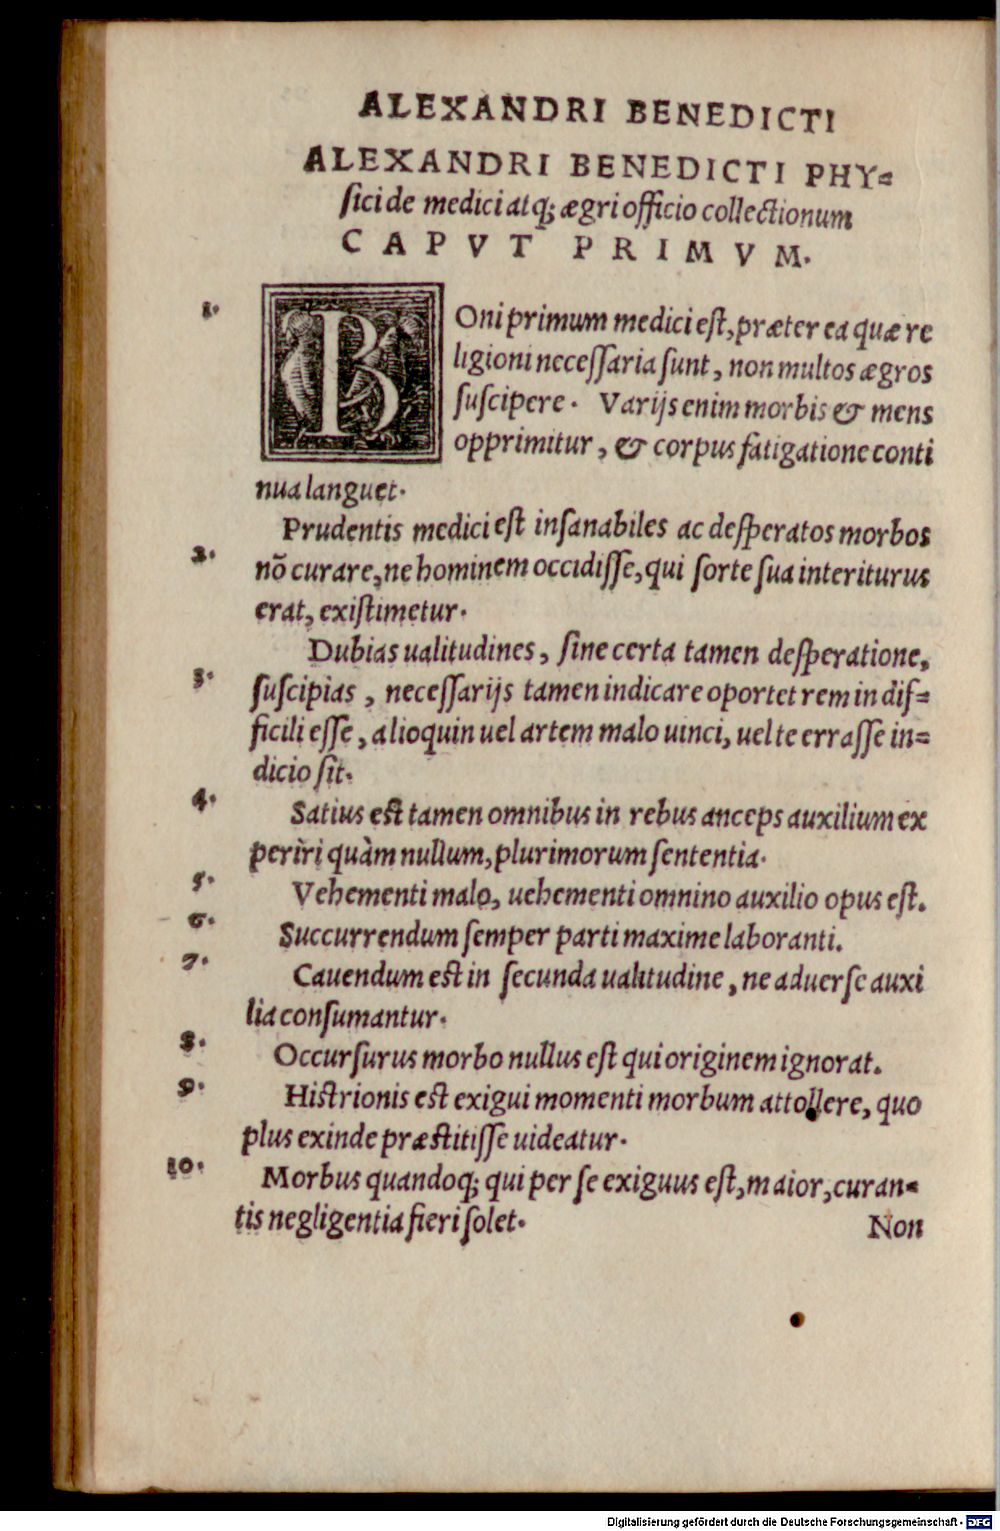 ALEXANDRI BENEDICTI
ALEXANDRI BENEDICTI PHY=
ſici de medici atq; ægri officio collectionum
CAPVT PRIMVM.
1. BOni primum medici eſt, præter ea quæ re
ligioni neceſſaria ſunt, non multos ægros
ſuſcipere. Varijs enim morbis & mens
opprimitur, & corpus fatigatione conti
nua languet.
Prudentis medici eſt inſanabiles ac deſperatos morbos
2. nõ curare, ne hominem occidiſſe, qui ſorte ſua interiturus
erat, exiſtimetur.
Dubias ualitudines, ſine certa tamen deſperatione,
3. ſuſcipias, neceſſarijs tamen indicare oportet rem in dif=
ficili eſſe, alioquin uel artem malo uinci, uel te erraſſe in=
dicio ſit.
4. Satius eſt tamen omnibus in rebus anceps auxilium ex
perìri quàm nullum, plurimorum ſententia.
5. Vehementi malo, uehementi omnino auxilio opus eſt.
6. Succurrendum ſemper parti maxime laboranti.
7. Cauendum eſt in ſecunda ualitudine, ne aduerſe auxi
lia conſumantur.
8. Occurſurus morbo nullus eſt qui originem ignorat.
9. Hiſtrionis eſt exigui momenti morbum attollere, quo
plus exinde præſtitiſſe uideatur.
10. Morbus quandoq; qui per ſe exiguus eſt, maior, curan=
tis negligentia fieri ſolet.
Non
Digitalisierung gefördert durch die Deutsche Forschungsgemeinschaft - DFG